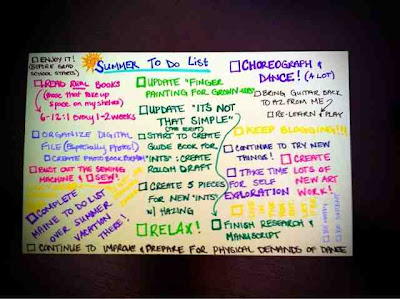 SUMMER TO DO LIST
ENJOY IT!
(BEFORE GRAD
SCHOOL STARTS)
READ REAL BOOKS
(those that take up
space on my shelves)
6-12:1 every 1-2 weeks
ORGANIZE DIGITAL
FILE (Especially Photos!)
CREATE PHOTO BOOK
BUST OUT THE SEWING
MACHINE & SEW!
COMPLETE
MAINE TO DO LIST
OVER SUMMER
VACATION THERE!
UPDATE "FINGER
PAINTING FOR GROWN-UPS"
UPDATE "ITS NOT
THAT SIMPLE"
START TO CREATE
GUIDE BOOK FOR
"INTS": CREATE
ROUGH DRAFT
CREATE 5 PIECES
FOR NEW "INTS"
W/ HAZING
RELAX!
CHOREOGRAPH &
DANCE! (A LOT)
BRING GUITAR BACK
TO AZ FROM ME
RE-LEARN & PLAY
KEEP BLOGGING!!!
CONTINUE TO TRY NEW
THINGS!
CREATE
LOTS OF
NEW ART
WORK!
TAKE TIME
FOR SELF
EXPLORATION
FINISH RESEARCH &
MANUSCRIPT
BE HAPPY
BE PRESENT
CONTINUE TO IMPROVE & PREPARE FOR PHYSICAL DEMANDS OF DANCE